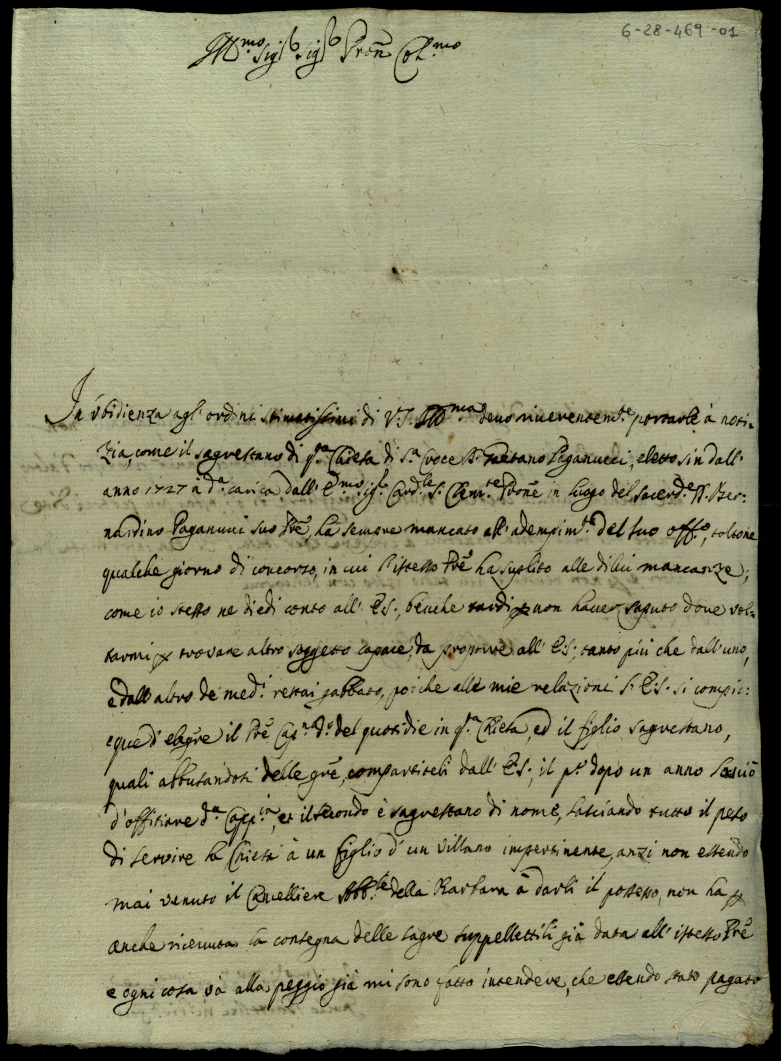 6-28-469-01
Ill.mo Sig.r Sig.r Pron Col.mo
In ubidienza agl'ordini stimatissimi di V.S. Ill.ma devo riverentem.te portarle à noti-
zia, come il sagrestano di q.ta Chiesa di S.ta Croce Gaetano Paganucci, eletto sin dall'
anno 1727 à d.a carica dall' E.mo Sig.r Card.le S. Clem.te Prone in luogo del Sacerd.e Ber:
nardino Paganucci suo Pre, ha sempre mancato all'adempim.to del suo off.o, toltone
qualche giorno di concorso, in cui l'istesso Pre ha suplito alle dilui mancanze,
come io stesso ne diedi conto all' E.S., benche tardi p non haver saputo dove vol-
tarmi p trovare altro soggetto capace, da proporre all' E.S., tanto più che dall'uno,
e dall'altro de med.i restai gabbato, poiche alle mie relazioni l' E.S. si compia:
que d'elegere il Pre Cap.no del quotidie in q.ta Chiesa, ed il figlio sagrestano,
quali abbusandosi delle gre, compartiteli dall' E.S., il p.o dopo un anno lasciò
d'offitiare d.a Capp.la, et il secondo è sagrestano di nome, lasciando tutto il peso
di servire la Chiesa à un figlio d'un villano impertinente, anzi non essendo
mai venuto il Cancelliere Abb.le della Barbara à darli il possesso, non ha p
anche ricevuta la consegna delle sagre suppellettili già data all'istesso Pre
e ogni cosa và alla peggio già mi sono fatto intendere, che essendo stato pagato